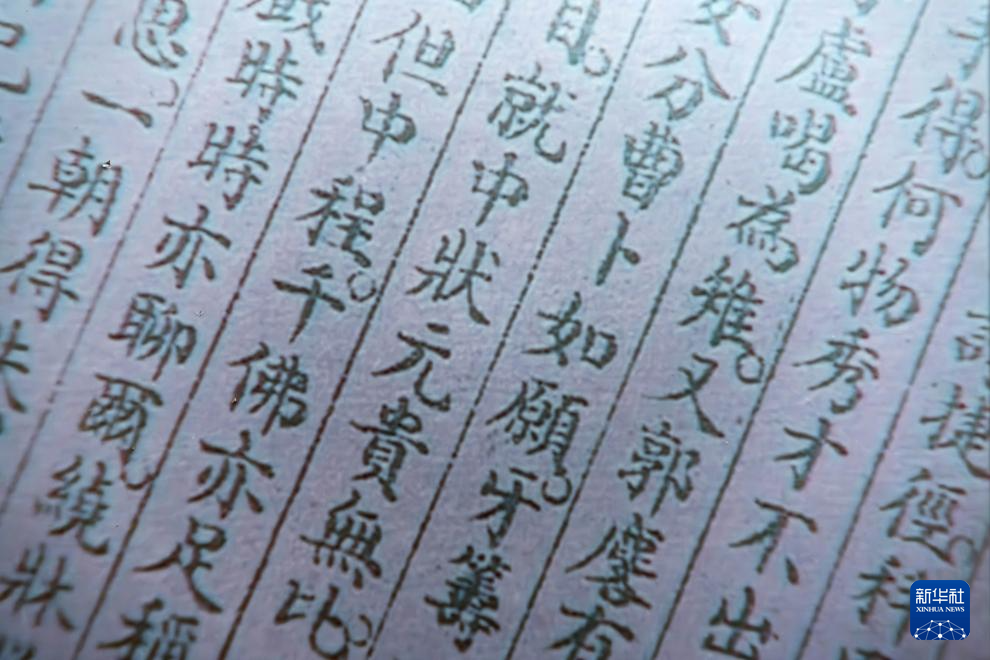 捷徑。科
手得。何物秀才不出
盧喝為雉。又郭有
分曹卜如願。牙籌
目。就中狀元貴無比。
但中程。千佛亦足稱
戲時時亦聊爾。繞狀
恩。一朝得
新华社
XINHUA NEWS